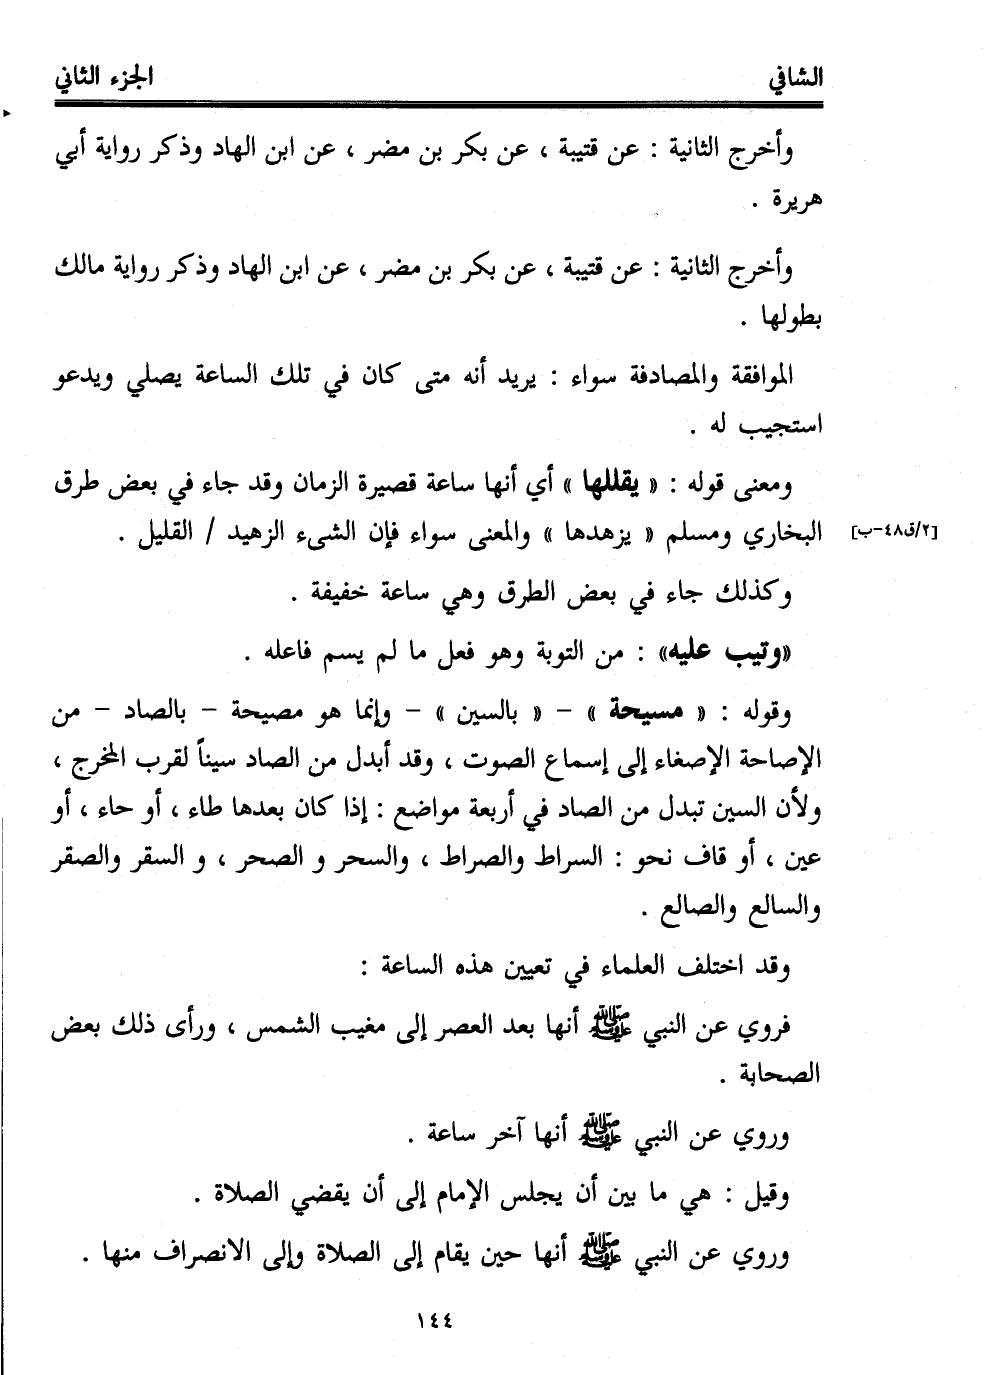 الشافي الجزء الثاني
وأخرج الثانية : عن قتيبة ، عن بكر بن مضر ، عن ابن الهاد وذكر رواية أبي
هريرة .
وأخرج الثانية : عن قتيبة ، عن بكر بن مضر ، عن ابن الهاد وذكر رواية مالك
بطولها .
الموافقة والمصادفة سواء : يريد أنه متى كان في تلك الساعة يصلي ويدعو
استجيب له .
ومعنى قوله : « يقللها » أي أنها ساعة قصيرة الزمان وقد جاء في بعض طرق
البخاري ومسلم « يزهدها » والمعنى سواء فإن الشيء الزهيد / القليل . [٢/ق٤٨-ب]
وكذلك جاء في بعض الطرق وهي ساعة خفيفة .
«وتيب عليه» : من التوبة وهو فعل ما لم يسم فاعله .
وقوله : « مسيحة » – « بالسين » – وإنما هو مصيحة – بالصاد – من
الإصاحة الإصغاء إلى إسماع الصوت ، وقد أبدل من الصاد سيناً لقرب المخرج ،
ولأن السين تبدل من الصاد في أربعة مواضع : إذا كان بعدها طاء ، أو حاء ، أو
عين ، أو قاف نحو : السراط والصراط ، والسحر و الصحر ، و السقر والصقر
والسالع والصالع .
وقد اختلف العلماء في تعيين هذه الساعة :
فروي عن النبي ﷺ أنها بعد العصر إلى مغيب الشمس ، ورأى ذلك بعض
الصحابة .
وروي عن النبي ﷺ أنها آخر ساعة .
وقيل : هي ما بين أن يجلس الإمام إلى أن يقضي الصلاة .
وروي عن النبي ﷺ أنها حين يقام إلى الصلاة وإلى الانصراف منها .
١٤٤